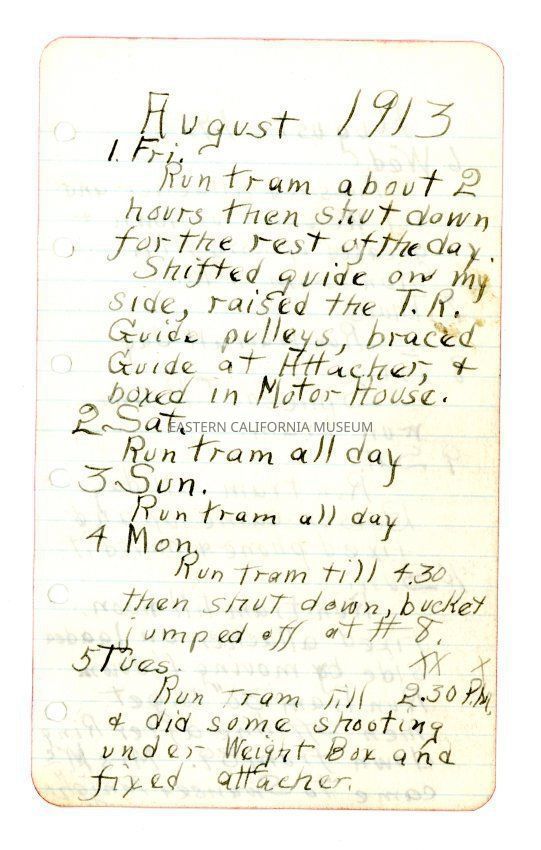 August 1913
1. Fri.
Run tram about 2
hours then shut down
for the rest of the day.
Shifted guide on my
side, raised the T.R.
Guide pulleys, braced
Guide at Attacher, &
boxed in Motor House.
2 Sat.
EASTERN CALIFORNIA MUSEUM
Run tram all day
3 Sun.
Run tram all day
4 Mon.
Run tram till 4.30
then shut down, bucket
jumped off at # 8.
5 Tues. XX X
Run Tram Till 2.30 P.M.
& did some shooting
under Weight Box and
fixed attacher.